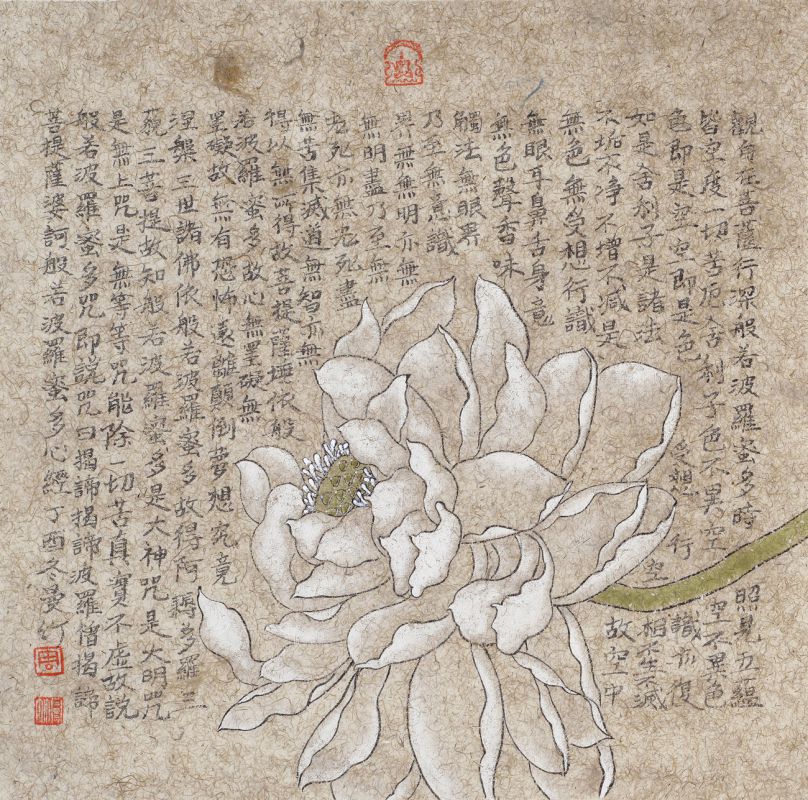 觀自在菩薩行深般若波羅蜜多時照見五蘊
皆空度一切苦厄舍利子色不異空空不異色
色即是空空即是色受想行識亦復
如是舍利子是諸法空相不生不滅
不垢不淨不增不減是故空中
無色無受想行識
無眼耳鼻舌身意
無色聲香味
觸法無眼界
乃至無意識
界無無明亦無
無明盡乃至無
老死亦無老死盡
無苦集滅道無智亦無
得以無所得故菩提薩埵依般
若波羅蜜多故心無罣礙無
罣礙故無有恐怖遠離顛倒夢想究竟
涅槃三世諸佛依般若波羅蜜多故得阿耨多羅三
藐三菩提故知般若波羅蜜多是大神咒是大明咒
是無上咒是無等等咒能除一切苦真實不虛故說
般若波羅蜜多咒即說咒曰揭諦揭諦波羅僧揭諦
菩提薩婆訶般若波羅蜜多心經丁酉冬